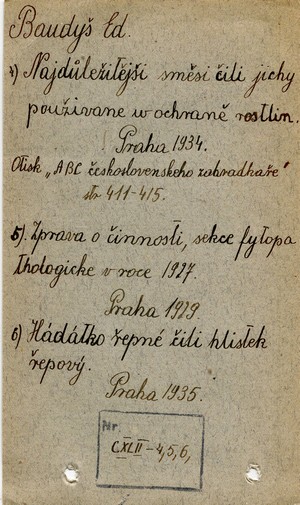 Baudyš Ed.
4) Najdůležitějši směsi čili jichy
používane w ochraně rostlin.
Praha 1934.
Otisk „ABC československeho zahradkaře"
str 411-415.
5). Zprava o činnosti, sekce fytopa
thologicke v roce 1927.
Praha 1929.
6) Hádátko řepné čili hlistek
řepový.
Praha 1935.
Nr.
CXLII-4,5,6,